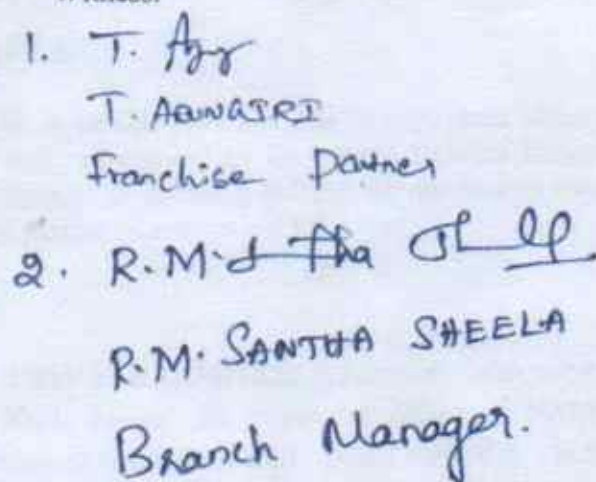 1. T.
T. ARUNGIRI
Franchise Partner
2. R.M.
R.M. SANTHA SHEELA
Branch Manager.